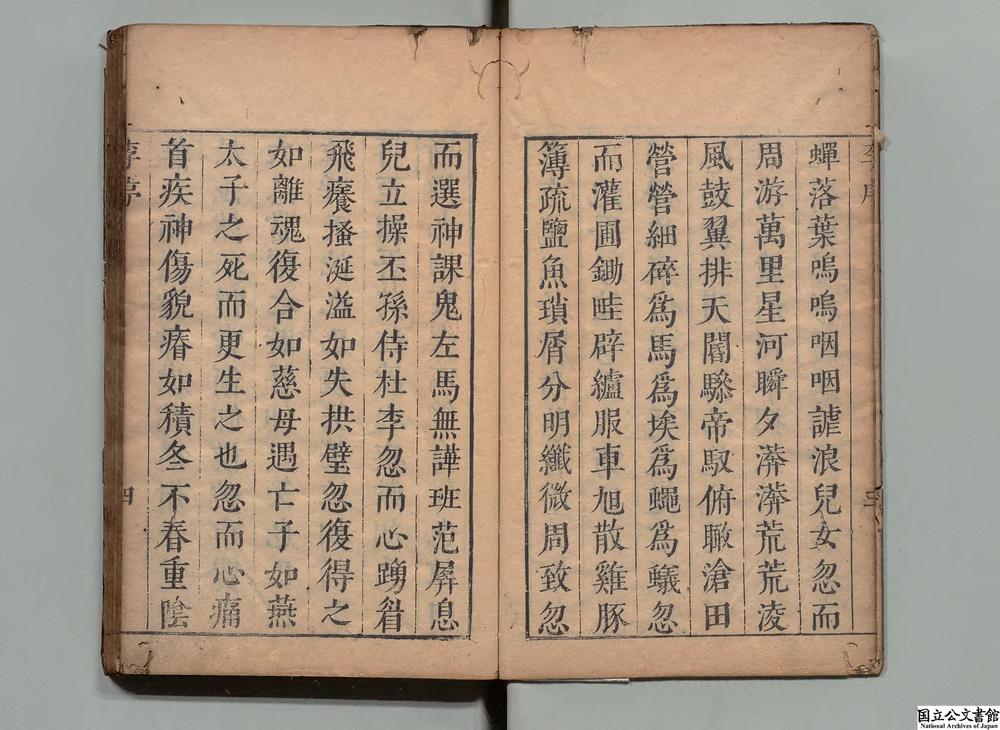 蟬落葉嗚嗚咽咽謔浪兒女忽而
周游萬里星河瞬夕漭漭荒荒凌
風鼓翼排天閶驂帝馭俯瞰滄田
營營細碎爲馬爲埃爲蠅爲蟻忽
而灌圃鋤畦辟纑服車旭散雞豚
簿疏鹽魚瑣屑分明纖微周致忽
而選神課鬼左馬無譁班范屏息
兒立操丕孫侍杜李忽而心踴眉
飛癢搔涎溢如失拱璧忽復得之
如離魂復合如慈母遇亡子如燕
太子之死而更生之也忽而心痛
首疾神傷貌瘠如積冬不春重陰
李序
四
国立公文書館
National Archives of Japan